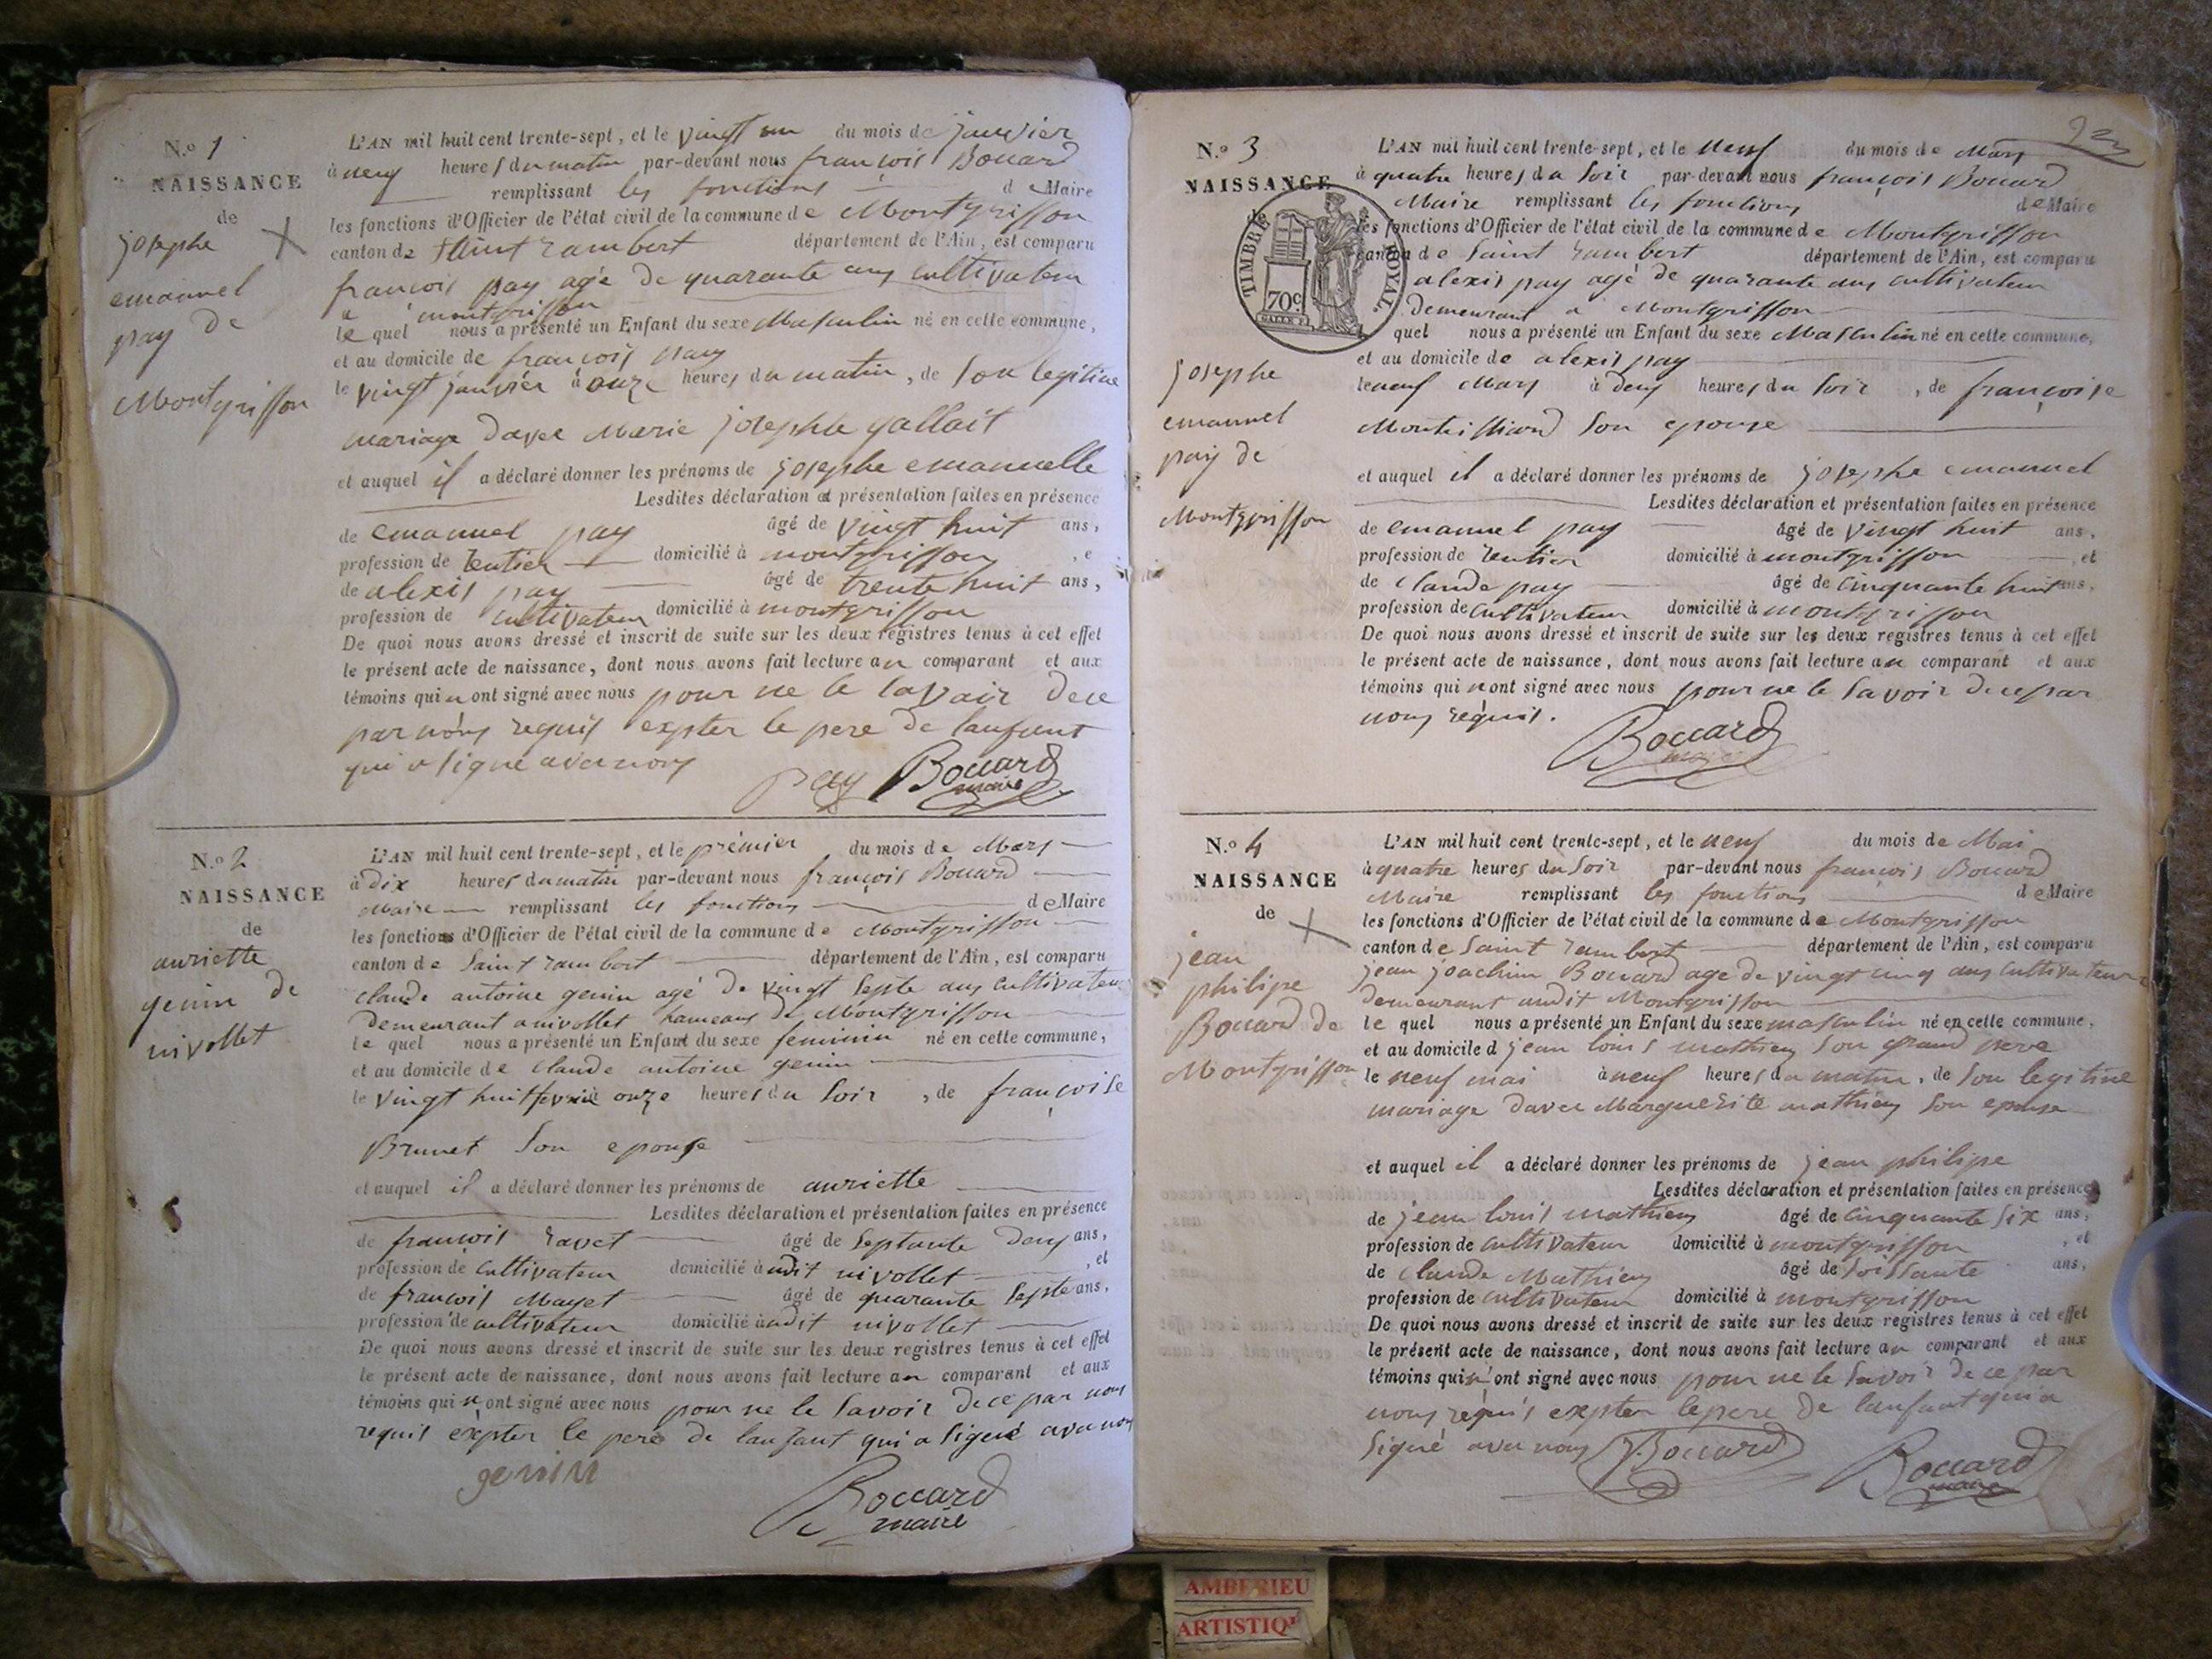 N.o 1
NAISSANCE
de
josephe
emanuel
pay de
Montgriffon
L'AN mil huit cent trente-sept, et le vingt un du mois de janvier
à neuf heures du matin par-devant nous françois Bouard
remplissant les fonctions de Maire
les fonctions d'Officier de l'état civil de la commune de Montgriffon
canton de Saint rambert département de l'Ain, est comparu
francois pay agé de quarante ans cultivateur
a montgriffon
le quel nous a présenté un Enfant du sexe Masculin né en cette commune,
et au domicile de françois pay
le vingt janvier à onze heures du matin, de son legitime
mariage davec Marie josephte gallait
et auquel il a déclaré donner les prénoms de josephe emanuelle
Lesdites déclaration et présentation faites en présence
de emanuel pay âgé de vingt huit ans,
profession de rentier domicilié à montgriffon, e
de alexis pay âgé de trente huit ans,
profession de cultivateur domicilié à montgriffon
De quoi nous avons dressé et inscrit de suite sur les deux registres tenus à cet effet
le présent acte de naissance, dont nous avons fait lecture au comparant et aux
témoins qui n ont signé avec nous pour ne le savoir de ce
par nous requis expter le pere de lanfant
qui a signé avec nous
Pay Bouard
maire
N.o 2
NAISSANCE
de
auriette
genin de
nivollet
L'AN mil huit cent trente-sept, et le prémier du mois de Mars
à dix heures du matin par-devant nous françois Bouard
Maire remplissant les fonctions de Maire
les fonctions d'Officier de l'état civil de la commune de Montgriffon
canton de Saint rambert département de l'Ain, est comparu
claude antoine genin agé de vingt septe ans cultivateur
demeurant a nivollet hameaus de Montgriffon
le quel nous a présenté un Enfant du sexe feminin né en cette commune,
et au domicile de claude antoine genin
le vingt huit fevrié onze heures du soir, de françoise
Brunet son epouse
et auquel il a déclaré donner les prénoms de auriette
Lesdites déclaration et présentation faites en présence
de françois ravet âgé de septante deux ans,
profession de cultivateur domicilié à udit nivollet, et
de françois Mayet âgé de quarante septe ans,
profession de cultivateur domicilié à udit nivollet
De quoi nous avons dressé et inscrit de suite sur les deux registres tenus à cet effet
le présent acte de naissance, dont nous avons fait lecture au comparant et aux
témoins qui n ont signé avec nous pour ne le savoir de ce par nous
requis expter le pere de lanfant qui a signé avec nous
genin
Bouard
maire
N.o 3
NAISSANCE
de
TIMBRE ROYAL
70c
josephe
emanuel
pay de
Montgriffon
L'AN mil huit cent trente-sept, et le neuf du mois de Mars
à quatre heures du soir par-devant nous françois Bouard
Maire remplissant les fonctions de Maire
les fonctions d'Officier de l'état civil de la commune de Montgriffon
canton de Saint rambert département de l'Ain, est comparu
alexis pay agé de quarante ans cultivateur
demeurant a Montgriffon
quel nous a présenté un Enfant du sexe Masculin né en cette commune,
et au domicile de alexis pay
le neuf Mars à deux heures du soir, de françoise
Montillard son epouse
et auquel il a déclaré donner les prénoms de josephe emanuel
Lesdites déclaration et présentation faites en présence
de emanuel pay âgé de vingt huit ans,
profession de rentier domicilié à montgriffon, et
de claude pay âgé de cinquante huit ans,
profession de cultivateur domicilié à montgriffon
De quoi nous avons dressé et inscrit de suite sur les deux registres tenus à cet effet
le présent acte de naissance, dont nous avons fait lecture au comparant et aux
témoins qui n ont signé avec nous pour ne le savoir de ce par
nous requis.
Bouard
maire
N.o 4
NAISSANCE
de
jean
philipe
Bouard de
Montgriffon
L'AN mil huit cent trente-sept, et le neuf du mois de Mai
à quatre heures du soir par-devant nous françois Bouard
Maire remplissant les fonctions de Maire
les fonctions d'Officier de l'état civil de la commune de Montgriffon
canton de Saint rambert département de l'Ain, est comparu
jean joachim Bouard age de vingt cinq ans cultivateur
demeurant audit Montgriffon
le quel nous a présenté un Enfant du sexe masculin né en cette commune,
et au domicile d jean louis mathieu son grand pere
le neuf mai à neuf heures du matin, de son legitime
mariage davec Marguerite mathieu son epouse
et auquel il a déclaré donner les prénoms de jean philipe
Lesdites déclaration et présentation faites en présence
de jean louis mathieu âgé de cinquante six ans,
profession de cultivateur domicilié à montgriffon, et
de claude Mathieu âgé de soissante ans,
profession de cultivateur domicilié à montgriffon
De quoi nous avons dressé et inscrit de suite sur les deux registres tenus à cet effet
le présent acte de naissance, dont nous avons fait lecture au comparant et aux
témoins qui n ont signé avec nous pour ne le savoir de ce par
nous requis expter le pere de lanfant qui a
signé avec nous Bouard
Bouard
maire
AMBERIEU
ARTISTIQ